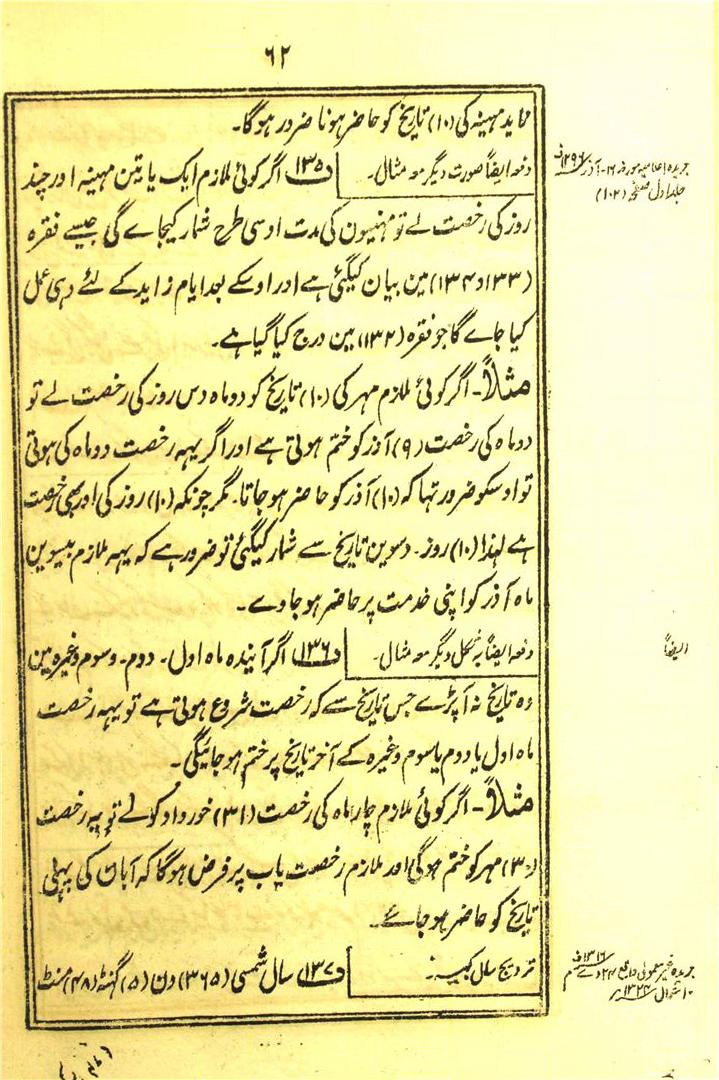 ۶۲
ماید مہینہ کی (۱۰) تاریخ کو حاضر ہونا ضرور ہوگا۔
دفعہ ایضاً صورت دیگر معہ مثال۔
(۱۳۵) اگر کوئی ملازم ایک یا تین مہینہ اور چند
جریدہ اعلامیہ مورخہ ۱۶۔ آذر ۱۲۹۶ف
جلد اول صفحہ (۱۰۲)
روز کی رخصت لے تو مہنیون کی مدت اوسی طرح شمار کیجاے گی جیسے فقرہ
(۱۳۳ و ۱۳۴) مین بیان کیگئی ہے اور اوسکے بعد ایام زاید کے لئے وہی عمل
کیا جاے گا جو فقرہ (۱۳۲) مین درج کیا گیا ہے۔
مثلاً۔ اگر کوئی ملازم مہر کی (۱۰) تاریخ کو دو ماہ دس روز کی رخصت لے تو
دو ماہ کی رخصت (۹) آذر کو ختم ہوتی ہے اور اگر یہہ رخصت دو ماہ کی ہوتی
تو اوسکو ضرور تہا کہ (۱۰) آذر کو حاضر ہو جاتا۔ مگر چونکہ (۱۰) روز کی اور بھی رخصت
ہے لہذا (۱۰) روز۔ دسوین تاریخ سے شمار کیگئی تو ضرور ہے کہ یہہ ملازم بیسوین
ماہ آذر کو اپنی خدمت پر حاضر ہو جاوے۔
دفعہ ایضاً بہ شکل دیگر معہ مثال۔
(۱۳۶) اگر آیندہ ماہ اول۔ دوم۔ وسوم وغیرہ مین
ایضاً
وہ تاریخ نہ آپڑے جس تاریخ سے کہ رخصت شروع ہوتی ہے تو یہہ رخصت
ماہ اول یا دوم یا سوم وغیرہ کے آخر تاریخ پر ختم ہو جائیگی۔
مثلاً۔ اگر کوئی ملازم چار ماہ کی رخصت (۳۱) خورداد کو لے تو یہ رخصت
(۳۰) مہر کو ختم ہوگی اور ملازم رخصت یاب پر فرض ہوگا کہ آبان کی پہلی
تاریخ کو حاضر ہو جائے۔
ترویج سال کبیسہ۔
(۱۳۷) سال شمسی (۳۶۵) دن (۵) گہنٹہ (۴۸) منٹ
جریدہ غیر معمولی واقع ۲۴ دے ۱۳۱۶ف م
۱۰ شوال ۱۳۲۴ہ